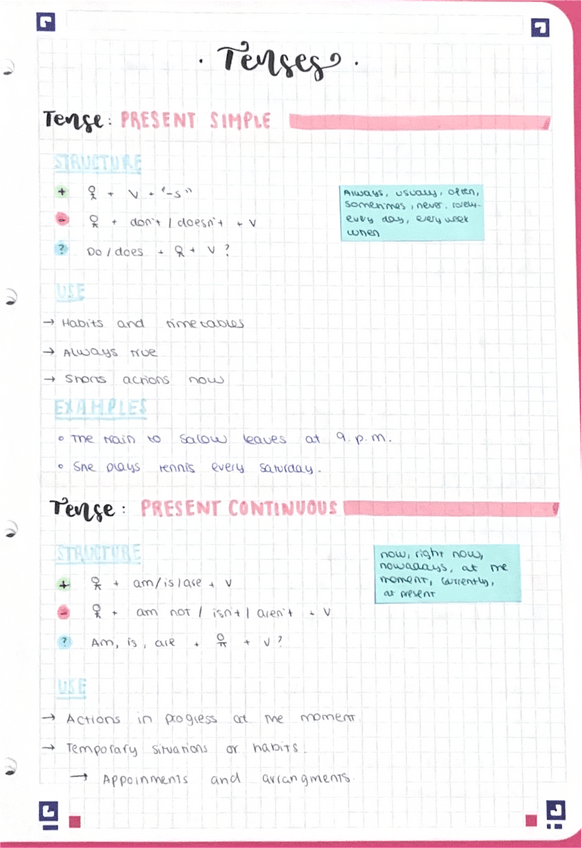 · Tenses ·
Tense: PRESENT SIMPLE
STRUCTURE
+ + V + "-s"
Always, usually, often,
sometimes, never, rarely
every day, every week
when
- + don't / doesn't + V
? Do / does + + V ?
USE
→ Habits and timetables
→ Always true
→ Shorts actions now
EXAMPLES
• The train to Salow leaves at 9. p.m.
• She plays tennis every saturday.
Tense: PRESENT CONTINUOUS
STRUCTURE
now, right now,
nowadays, at the
moment, currently,
at present
+ + am/is/are + V
- + am not / isn't / aren't + V
? Am, is, are + + V ?
USE
→ Actions in progress at the moment
→ Temporary situations or habits.
→ Appoinments and arrangments